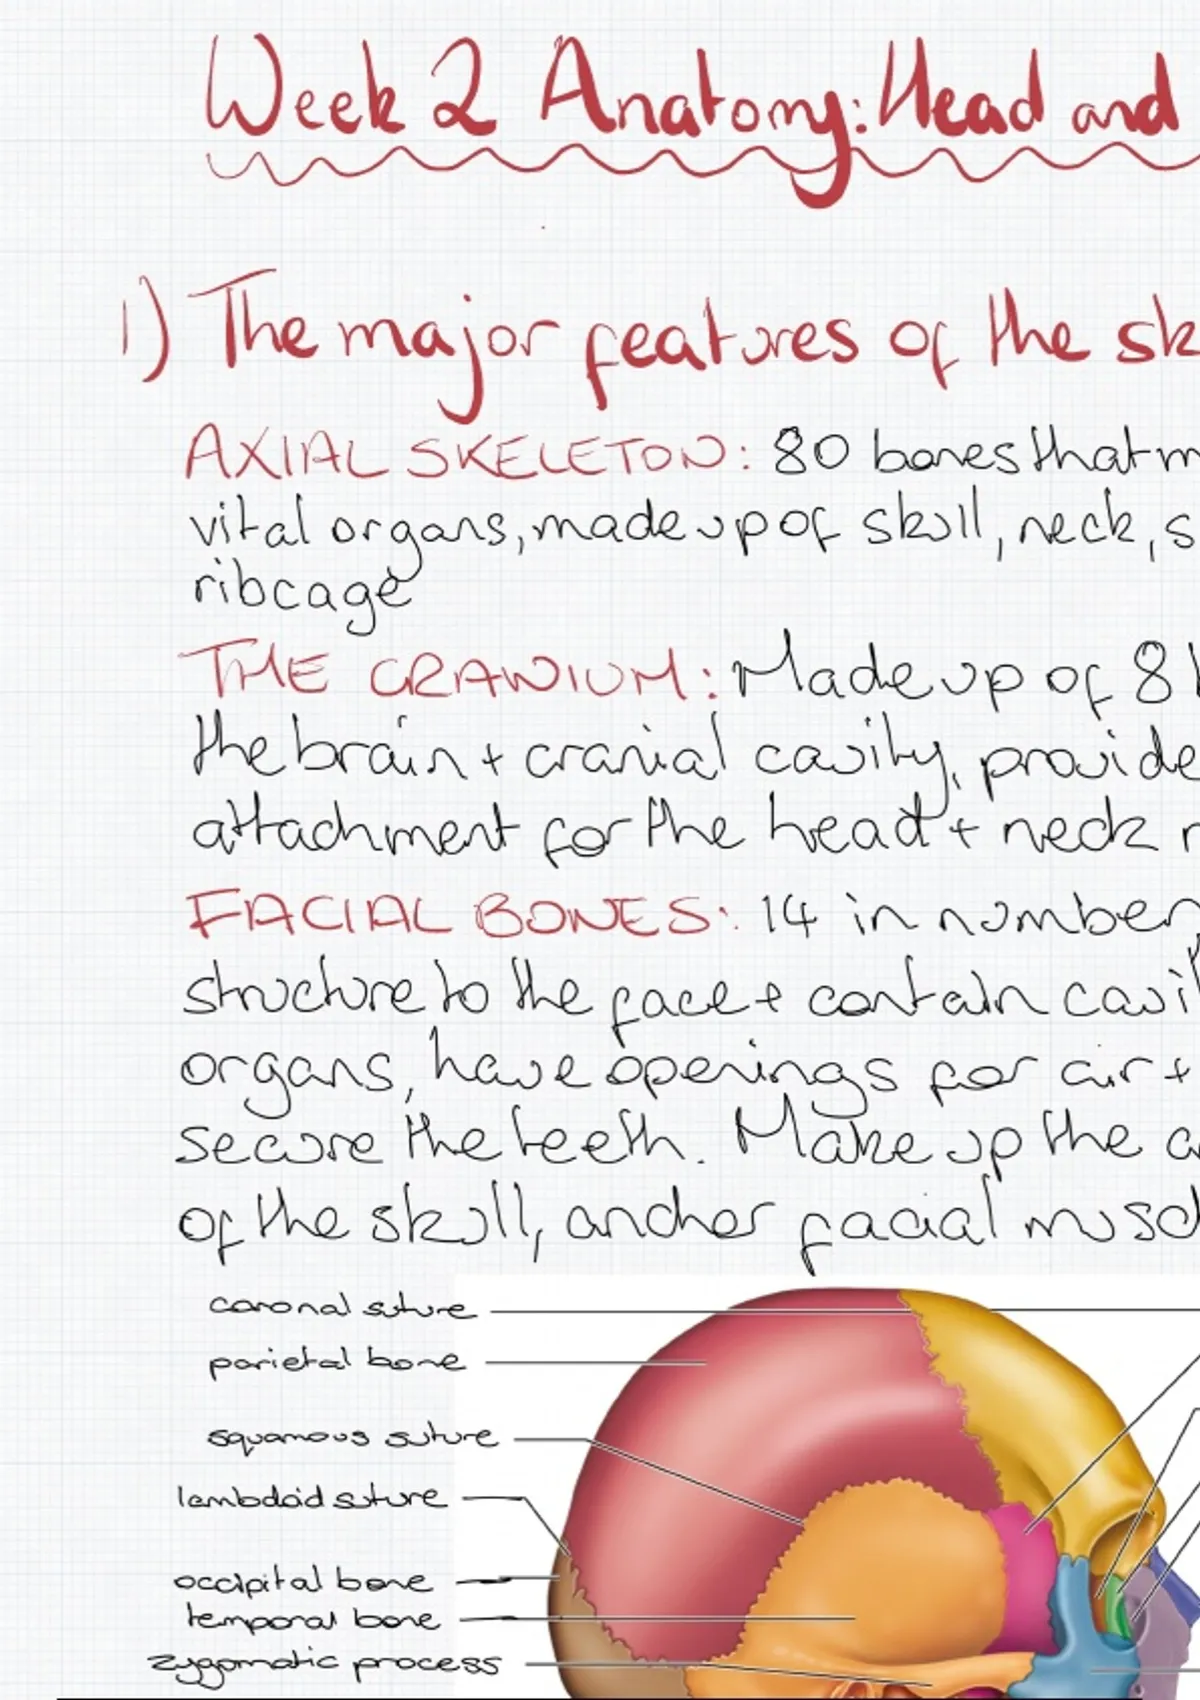 Week 2 Anatomy: Head and
1) The major features of the sk
AXIAL SKELETON: 80 bones that m
vital organs, made up of skull, neck, s
ribcage
THE CRANIUM: Made up of 8 b
the brain + cranial cavity, provide
attachment for the head + neck m
FACIAL BONES: 14 in number,
structure to the face + contain cavit
organs, have openings for air +
secure the teeth. Make up the a
of the skull, anchor facial muscl
coronal suture
parietal bone
squamous suture
lambdoid suture
occipital bone
temporal bone
zygomatic process